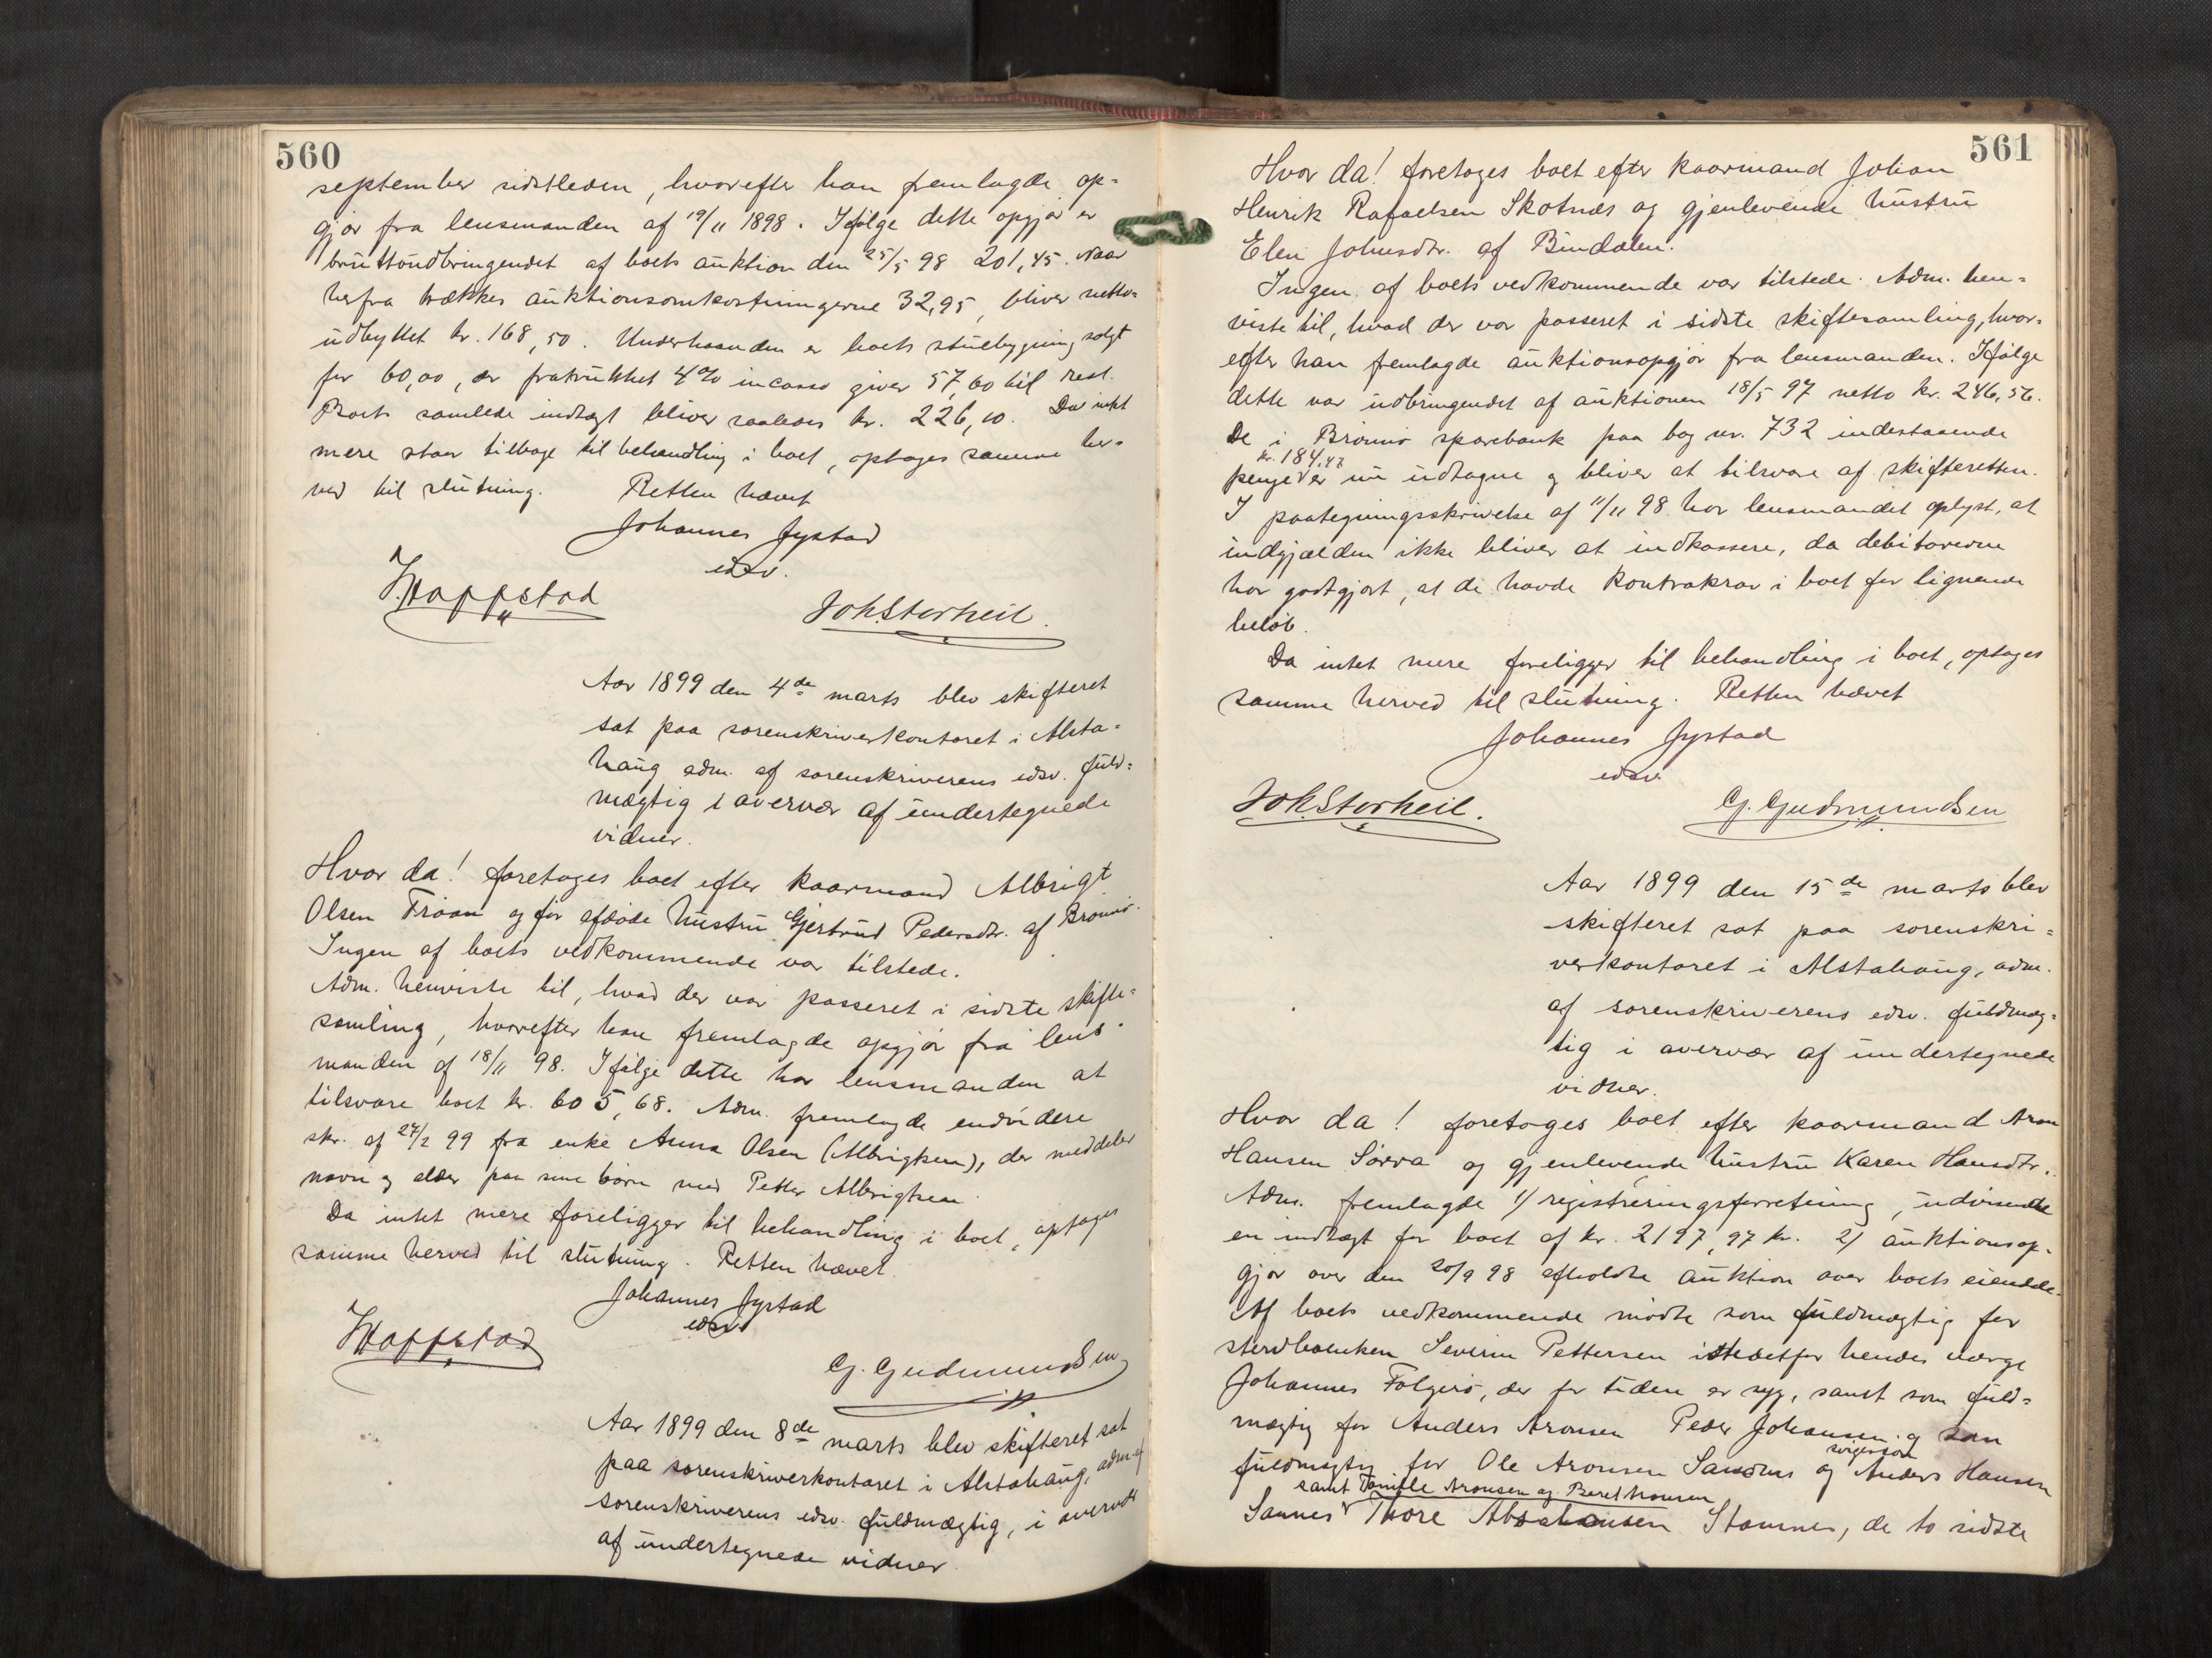 560
september sidstleden, hvorefter han fremlagde op=
gjör fra lensmanden af 19/11 1898. Ifölge dette opgjör er
bruttoudbringendet af boets auktion den 25/5 98 201,45. Naar
herfra trækkes auktionsomkostningerne 32,95, bliver netto=
udbyttet kr. 168,50. Underhaanden er boets stuebygning solgt
for 60,00, der fratrukket 4% incasso giver 57,60 til rest.
Boets samlede indtægt bliver saaledes kr. 226,10. Da intet
mere staar tilbage til behandling i boet, optages samme her=
ved til slutning. Retten hævet
Johannes Jystad
edsv.
Happstad
Joh.Storheil.
Aar 1899 den 4de marts blev skifteret
sat paa sorenskriverkontoret i Alsta=
haug adm. af sorenskriverens edsv. fuld=
mægtig i overvær af undertegnede
vidner.
Hvor da! foretoges boet efter kaarmand Albrigt
Olsen Tröan og för afdöde hustru Gjertrud Pedersdtr. af Brönnö.
Ingen af boets vedkommende var tilstede.
Adm. henviste til, hvad der var passeret i sidste skifte=
samling, hvorefter han fremlagde opgjör fra lens=
manden af 18/11 98. Ifölge dette har lensmanden at
tilsvare boet kr. 605,68. Adm. fremlagde endvidere
skr. af 27/2 99 fra enke Anna Olsen (Albrigtsen), der meddeler
navn og alder paa sine börn med Petter Albrigtsen.
Da intet mere foreligger til behandling i boet, optages
samme herved til slutning. Retten hævet.
Johannes Jystad
edsv
Happstad
G. Gudmundsen
Aar 1899 den 8de marts blev skifteret sat
paa sorenskriverkontoret i Alstahaug, adm. af
sorenskriverens edsv. fuldmægtig, i overvær
af undertegnede vidner.
561
Hvor da! foretoges boet efter kaarmand Johan
Henrik Rafaelsen Skotnæs og gjenlevende hustru
Elen Johnsdtr. af Bindalen.
Ingen af boets vedkommende var tilstede. Adm. hen=
viste til, hvad der var passeret i sidste skiftesamling, hvor=
efter han fremlagde auktionsopgjör fra lensmanden. Ifölge
dette var udbringendet af auktionen 18/5 97 netto kr. 246,56.
De i Brönnö sparebank paa bog nr. 732 indestaaende
kr. 184,47
penge er nu udtagne og bliver at tilsvare af skifteretten.
I paategningsskrivelse af 11/11 98 har lensmandet oplyst, at
indgjælden ikke bliver at indkassere, da debitorerne
har godtgjort, at de havde kontrakrav i boet for lignende
belöb.
Da intet mere foreligger til behandling i boet, optages
samme herved til slutning. Retten hævet
Johannes Jystad
edsv.
Joh.Storheil.
G. Gudmundsen
Aar 1899 den 15de marts blev
skifteret sat paa sorenskri=
verkontoret i Alstahaug, adm.
af sorenskriverens edsv. fuldmæg=
tig i overvær af undertegnede
vidner.
Hvor da! foretoges boet efter kaarmand Aron
Hansen Sörra og gjenlevende hustru Karen Hansdtr.
Adm. fremlagde 1/ registreringsforretning, udvisende
en indtægt for boet af kr. 2197,97 kr. 2/ auktionsop=
gjör over den 20/9 98 afholdte auktion over boets eiendele.
Af boets vedkommende mödte som fuldmægtig for
stervboenken Severin Pettersen istedetfor hendes værge
Johannes Folgerö, der for tiden er syg, samt som fuld=
mægtig for Anders Aronsen Peder Johansen og som
svigersön
fuldmægtig for Ole Aronsen Sandnes og Anders Hansen
samt Aronsen og
Sannes Thore Abrahamsen Stomnes, de to sidste